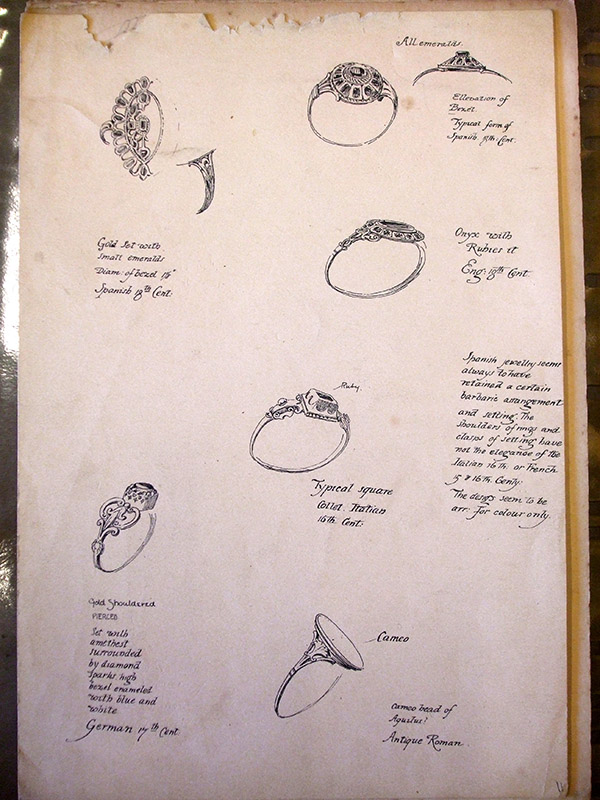 All emeralds.
Ellevation of
Bezel
Typical form of
Spanish 17th. Cent.
Gold set with
small emeralds
Diam: of bezel 1⅛"
Spanish 18th Cent:
Onyx with
Rubies it
Eng: 18th Cent.
Spanish jewellry seems
always to have
retained a certain
barbaric arrangement
and setting. The
shoulders of rings and
clasps of setting have
not the elegance of the
Italian 16th. or French.
15 & 16th. Centy:
The desgs seem to be
arr: for colour only.
Ruby.
Typical square
Collet. Italian
16th. Cent:
Gold Shouldered
PIERCED
Set with
amethest
surrounded
by diamond
sparks, high
bezel enameled
with blue and
white.
German 17th Cent.
Cameo
cameo head of
Antique Roman.